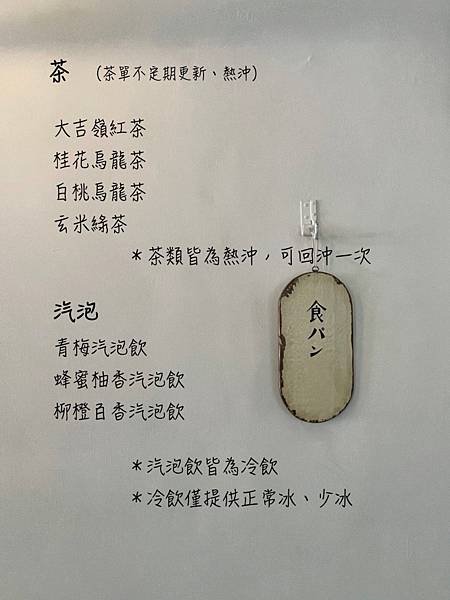 茶 (茶單不定期更新、熱沖)
大吉嶺紅茶
桂花烏龍茶
白桃烏龍茶
玄米綠茶
*茶類皆為熱沖，可回沖一次
汽泡
青梅汽泡飲
蜂蜜柚香汽泡飲
柳橙百香汽泡飲
*汽泡飲皆為冷飲
*冷飲僅提供正常冰、少冰
食パン